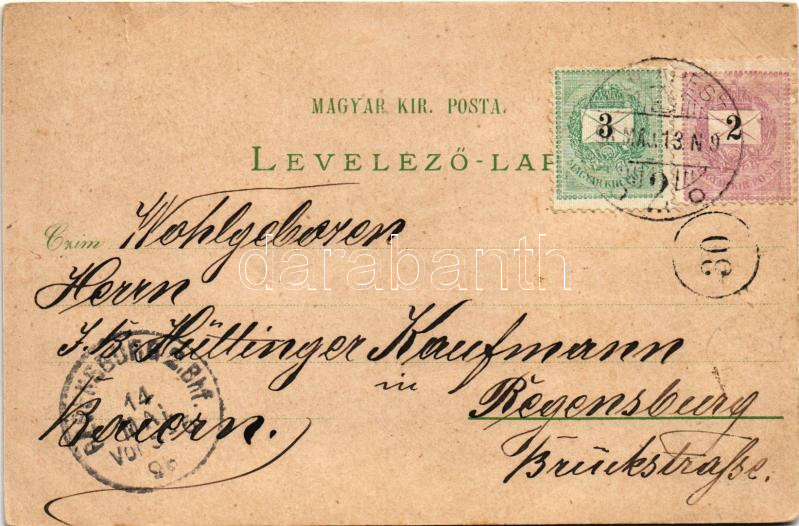 MAGYAR KIR. POSTA.
LEVELEZŐ-LAP
3
2
MAGYAR KIR.
KIR. POSTA
MÁJ. 13. N 9
30
Czim
Wohlgeboren
Herrn
J. B. Hüttinger Kaufmann
in Regensburg
Baiern.
Brückstraße.
14
MAI
Bhf.
darabanth